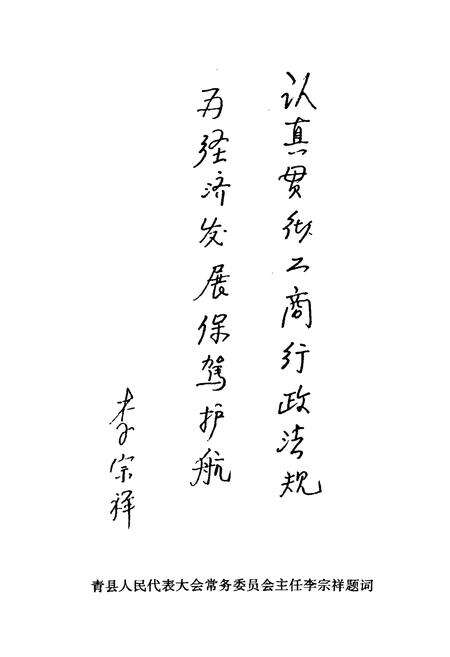 认真贯彻工商行政法规
为经济发展保驾护航
李宗祥
青县人民代表大会常务委员会主任李宗祥题词